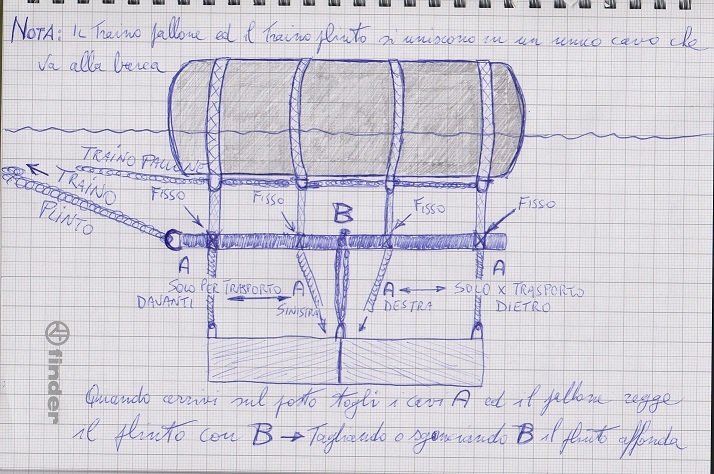 NOTA: IL Traino pallone ed il Traino plinto si uniscono in un unico cavo che
va alla barca
TRAINO PALLONE
TRAINO
PLINTO
FISSO
FISSO
B
FISSO
FISSO
A
SOLO PER TRASPORTO
DAVANTI
A
SINISTRA
A
DESTRA
A
SOLO X TRASPORTO
DIETRO
finder
Quando arrivi sul posto togli i cavi A ed il pallone regge
il plinto con B → Tagliando o sgonfiando B il plinto affonda